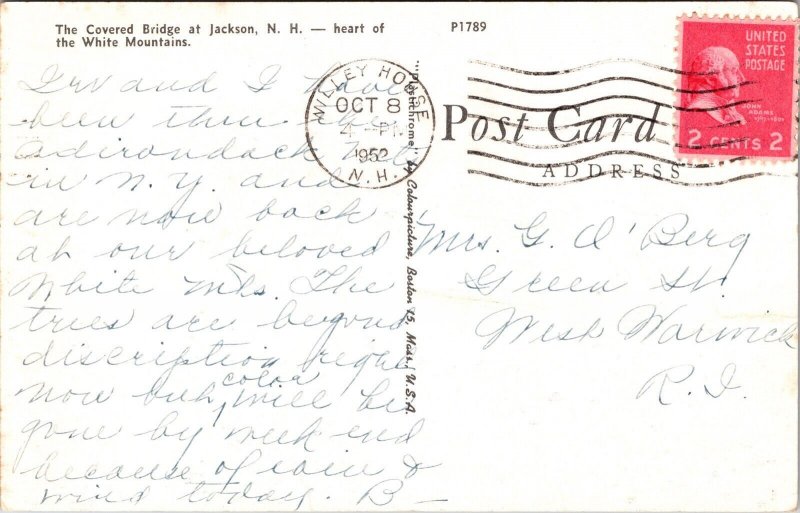 The Covered Bridge at Jackson, N. H. — heart of
the White Mountains.
P1789
Irv and I have
been thru the
Adirondack Mts
in N.Y. and
are now back
at our beloved
White Mts. The
trees are beyond
discription right
now but, color will be
gone by week end
because of rain &
wind today. B —
"Plastichrome" by Colourpicture, Boston 15, Mass., U.S.A.
WILLEY HOUSE
OCT 8
4 PM
1952
N. H.
Post Card
ADDRESS
UNITED
STATES
POSTAGE
JOHN
ADAMS
1797-1801
2 CENTS 2
Mrs. G. A' Berg
Green St.
West Warwick
R. I.